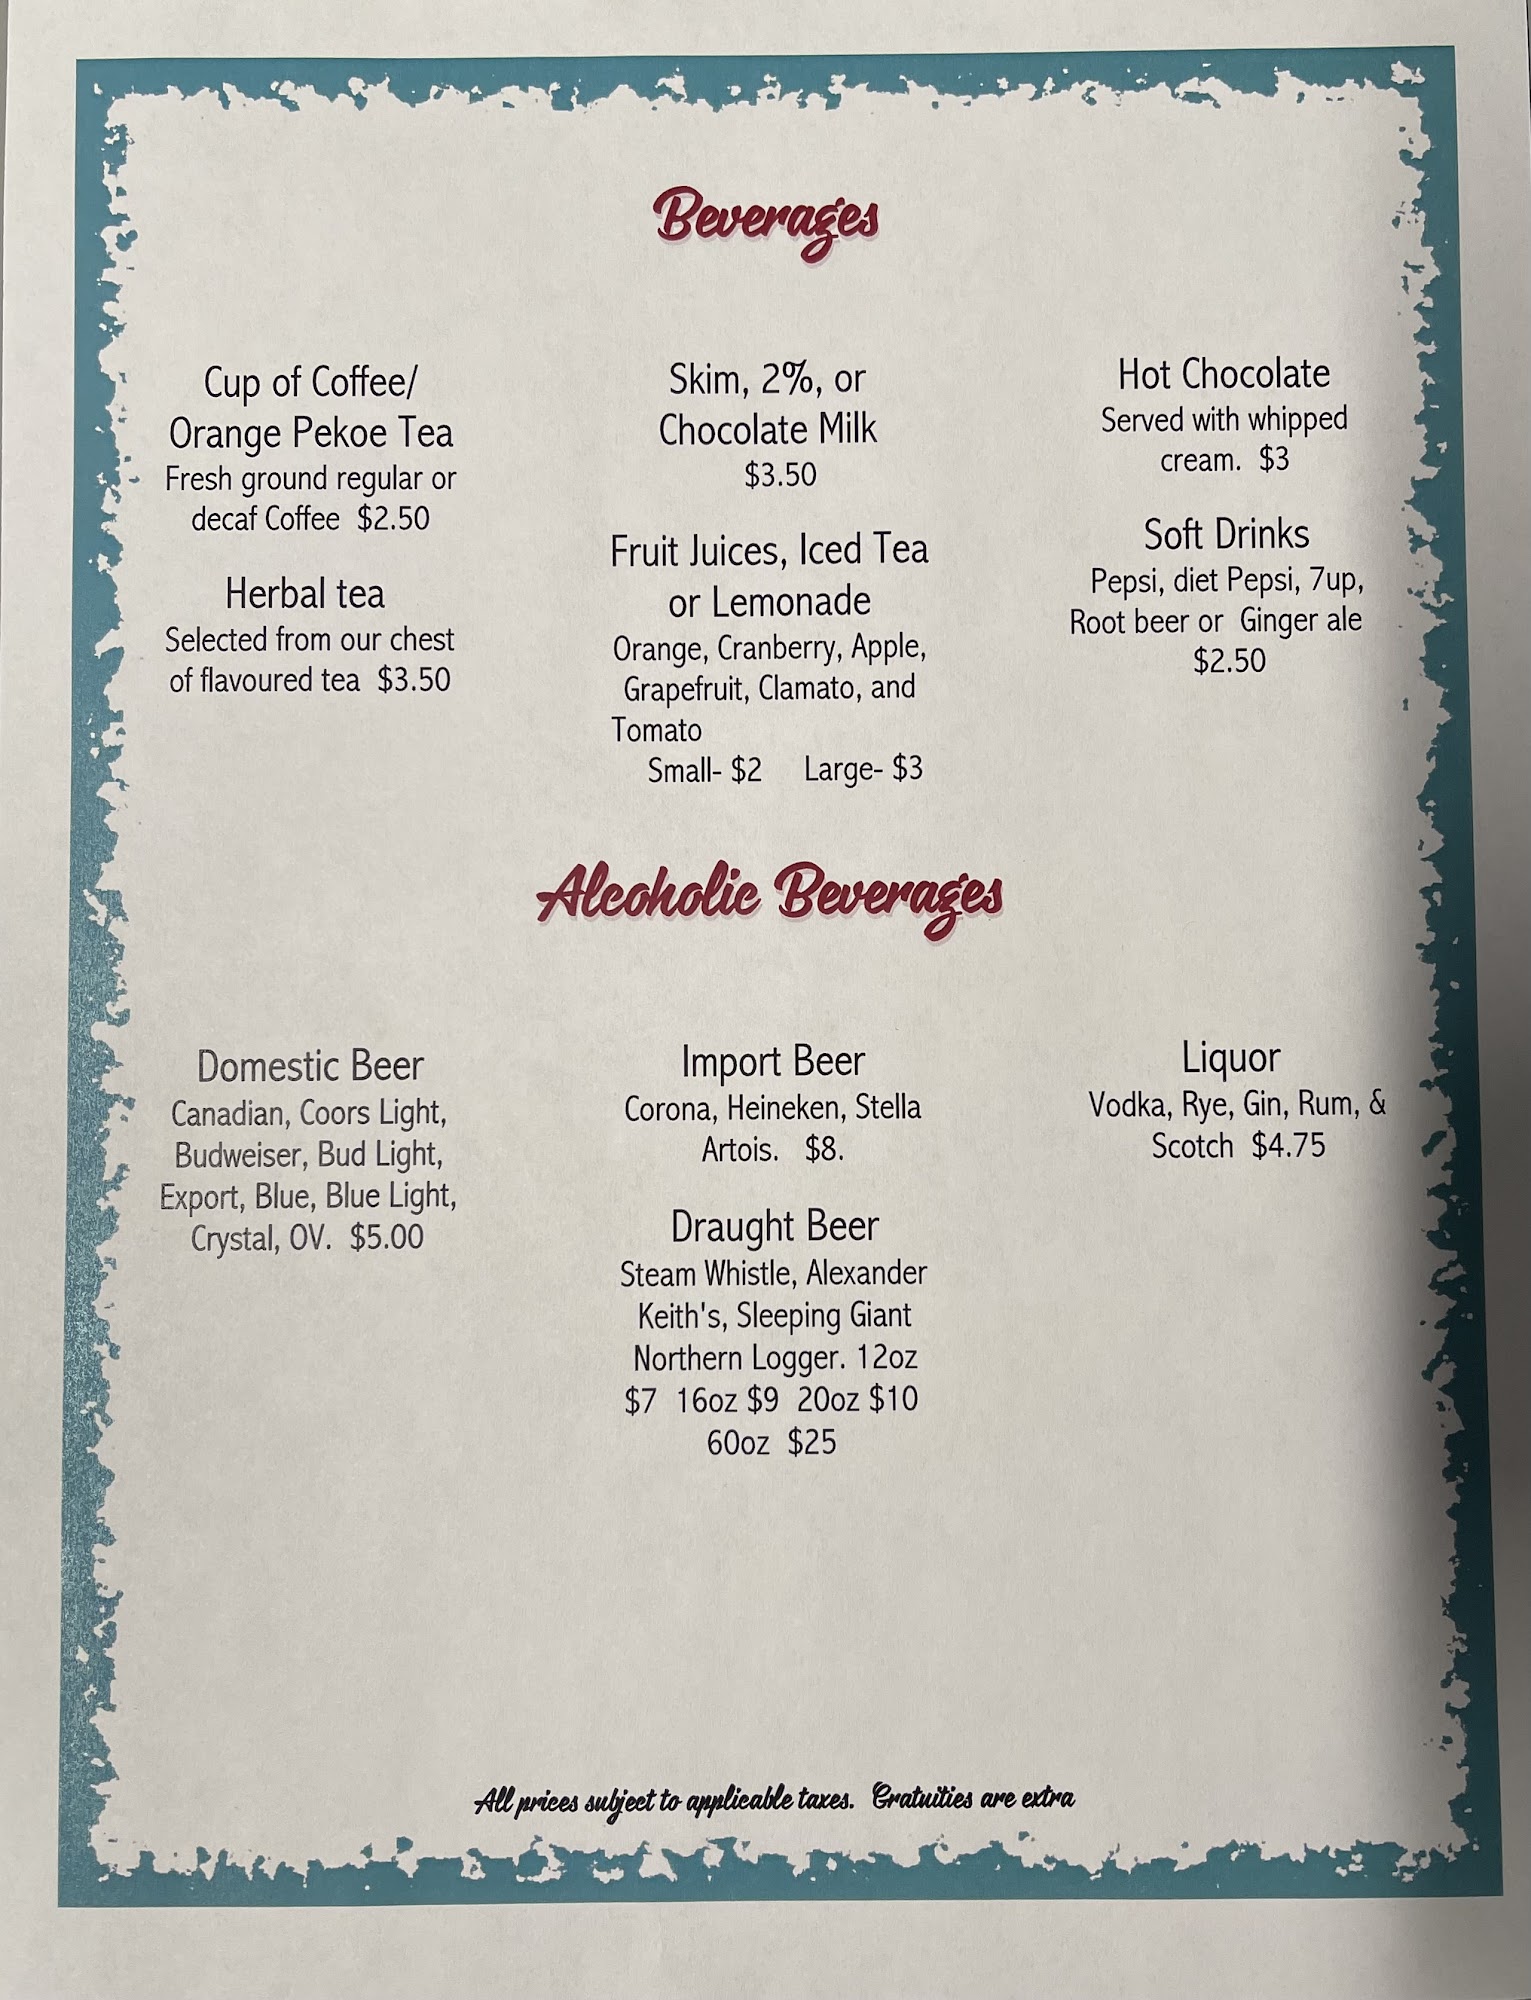 Beverages
Cup of Coffee/
Orange Pekoe Tea
Fresh ground regular or
decaf Coffee $2.50
Herbal tea
Selected from our chest
of flavoured tea $3.50
Skim, 2%, or
Chocolate Milk
$3.50
Fruit Juices, Iced Tea
or Lemonade
Orange, Cranberry, Apple,
Grapefruit, Clamato, and
Tomato
Small- $2 Large- $3
Hot Chocolate
Served with whipped
cream. $3
Soft Drinks
Pepsi, diet Pepsi, 7up,
Root beer or Ginger ale
$2.50
Alcoholic Beverages
Domestic Beer
Canadian, Coors Light,
Budweiser, Bud Light,
Export, Blue, Blue Light,
Crystal, OV. $5.00
Import Beer
Corona, Heineken, Stella
Artois. $8.
Draught Beer
Steam Whistle, Alexander
Keith's, Sleeping Giant
Northern Logger. 12oz
$7 16oz $9 20oz $10
60oz $25
Liquor
Vodka, Rye, Gin, Rum, &
Scotch $4.75
All prices subject to applicable taxes. Gratuities are extra